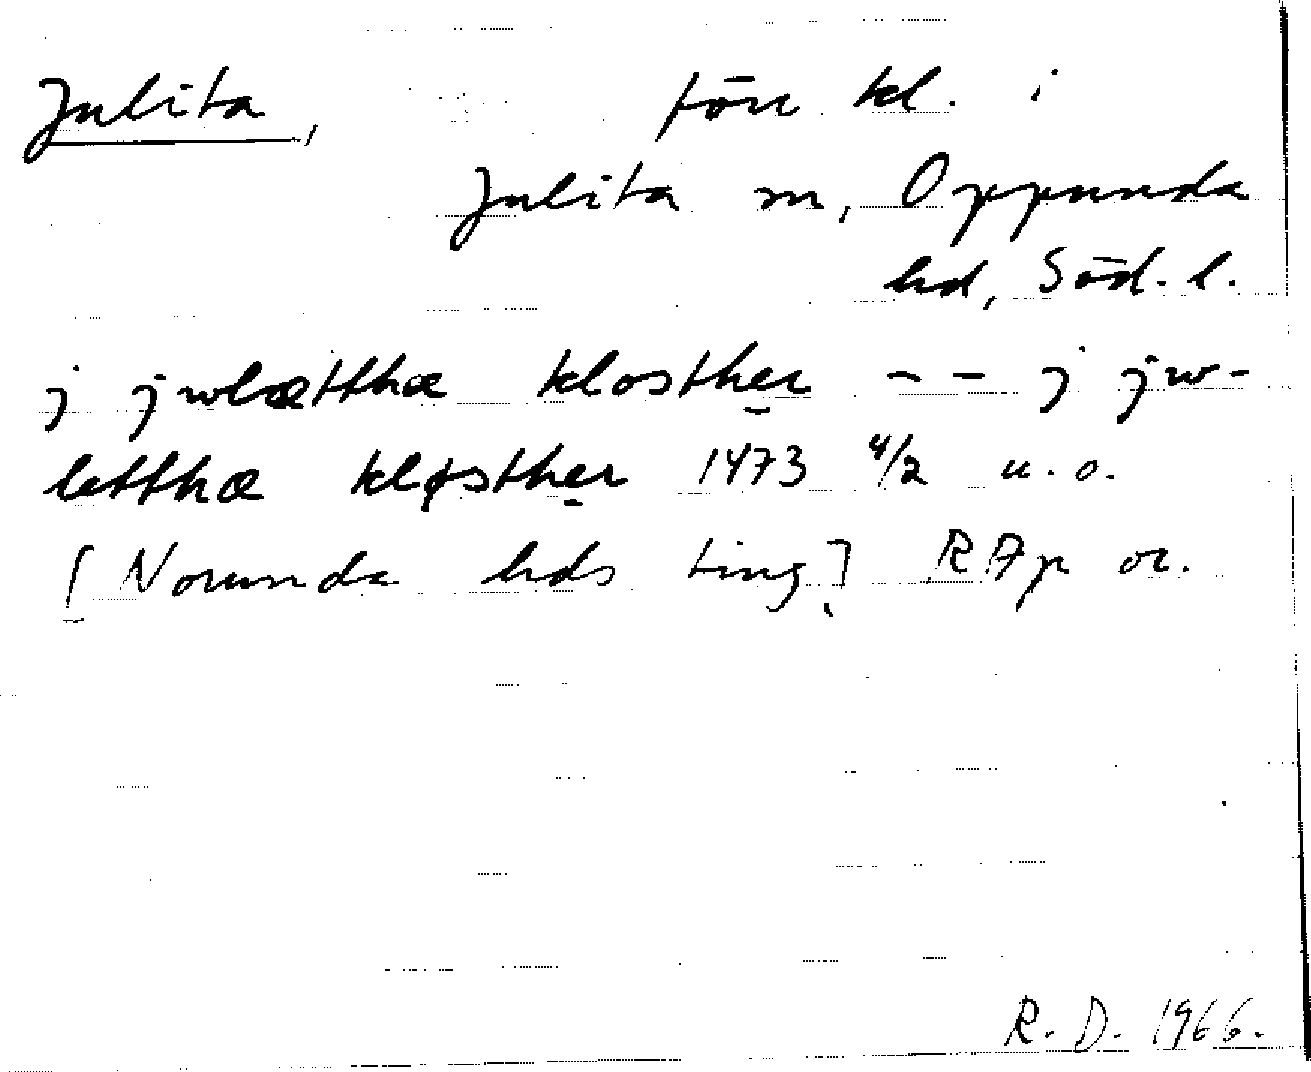 Julita, förr kl. i
Julita sn, Oppunda
hd, Söd. l.
j jwlætthæ klosther -- j jw-
letthæ kløsther 1473 4/2 u. o.
[Norunda hds ting] RAp or.
R. D. 1966.